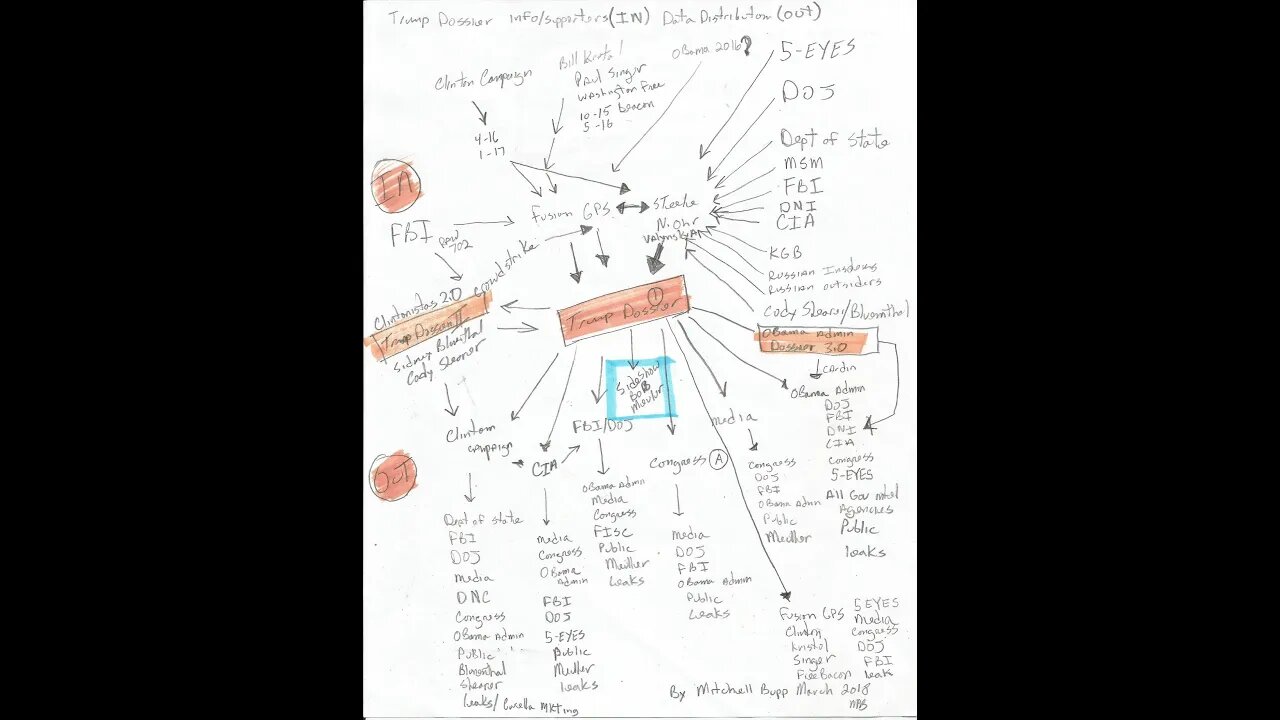 Trump Dossier info/supporters (IN) Data Distribution (OUT)
Clinton Campaign
4-16
1-17
Bill
Paul Singer
Washington Free
10-15 beacon
5-16
OBama 2016?
5-EYES
DOJ
Dept of State
MSM
FBI
DNI
CIA
KGB
Russian Insiders
Russian outsiders
Cody Shearer/Blumnthal
IN
FBI
Raw
702
Fusion GPS
Steele
N. Ohr
Crowdstrike
Clintonistas 2.0
Trump Dossier II
Sidney Blumthal
Cody Shearer
Trump Dossier
1
OBama Admin
Dossier 3.0
Cardin
OBama Admin
DOJ
FBI
DNI
CIA
Congress
5-EYES
All Gov intel
Agencies
Public
leaks
Sideshow
BOB
Meuller
Clinton
campaign
CIA
FBI/DOJ
Congress A
media
OUT
Dept of State
FBI
DOJ
media
DNC
Congress
OBama Admin
Public
Blumenthal
Shearer
Leaks/
Mkting
media
Congress
OBama
Admin
FBI
DOJ
5-EYES
Public
Meuller
leaks
OBama Admin
Media
Congress
FISC
Public
Meuller
leaks
media
DOJ
FBI
OBama Admin
Public
Leaks
Congress
DOJ
FBI
OBama Admn
Public
Meuller
Fusion GPS
Clinton
Kristol
Singer
FreeBacon
5 EYES
Media
Congress
DOJ
FBI
leak
By Mitchell Bupp March 2018